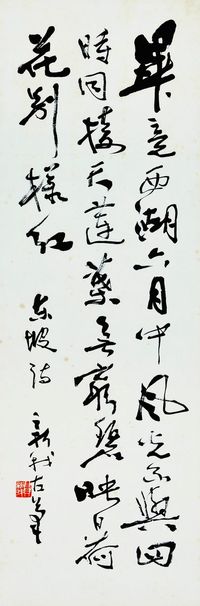 畢竟西湖六月中風光不與四
時同接天蓮葉無窮碧映日荷
花別樣紅 東坡詩
新我左筆